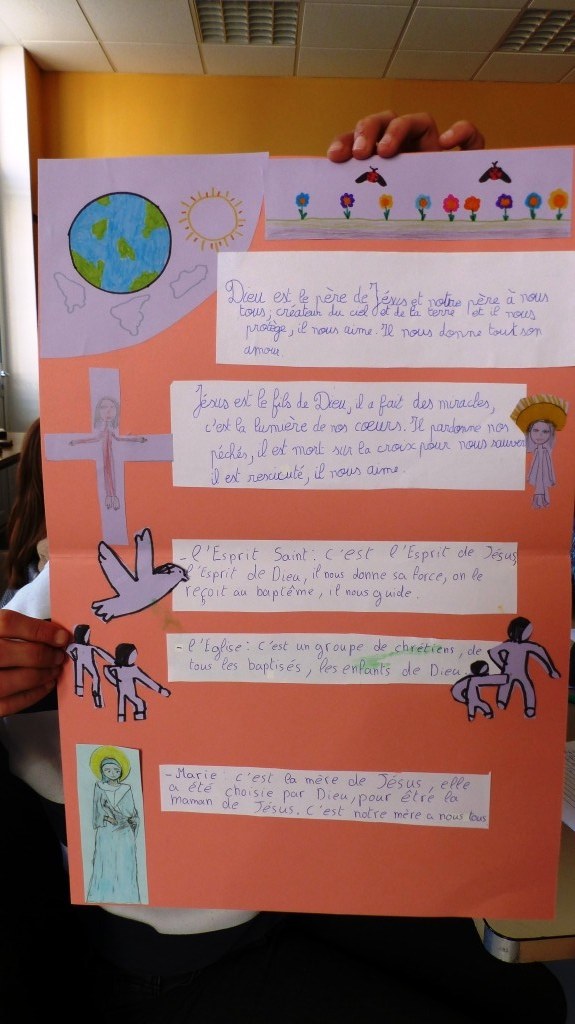 Dieu est le père de Jésus et notre père à nous
tous, créateur du ciel et de la terre et il nous
protège, il nous aime. Il nous donne tout son
amour.
Jésus est le fils de Dieu, il a fait des miracles,
c'est la lumière de nos cœurs. Il pardonne nos
péchés, il est mort sur la croix pour nous sauver
il est rescicuté, il nous aime.
- l'Esprit Saint : c'est l'Esprit de Jésus,
l'Esprit de Dieu, il nous donne sa force, on le
reçoit au baptême, il nous guide.
- l'Eglise : c'est un groupe de chrétiens, de
tous les baptisés, les enfants de Dieu.
- Marie : c'est la mère de Jésus, elle
a été choisie par Dieu, pour être la
maman de Jésus. C'est notre mère a nous tous